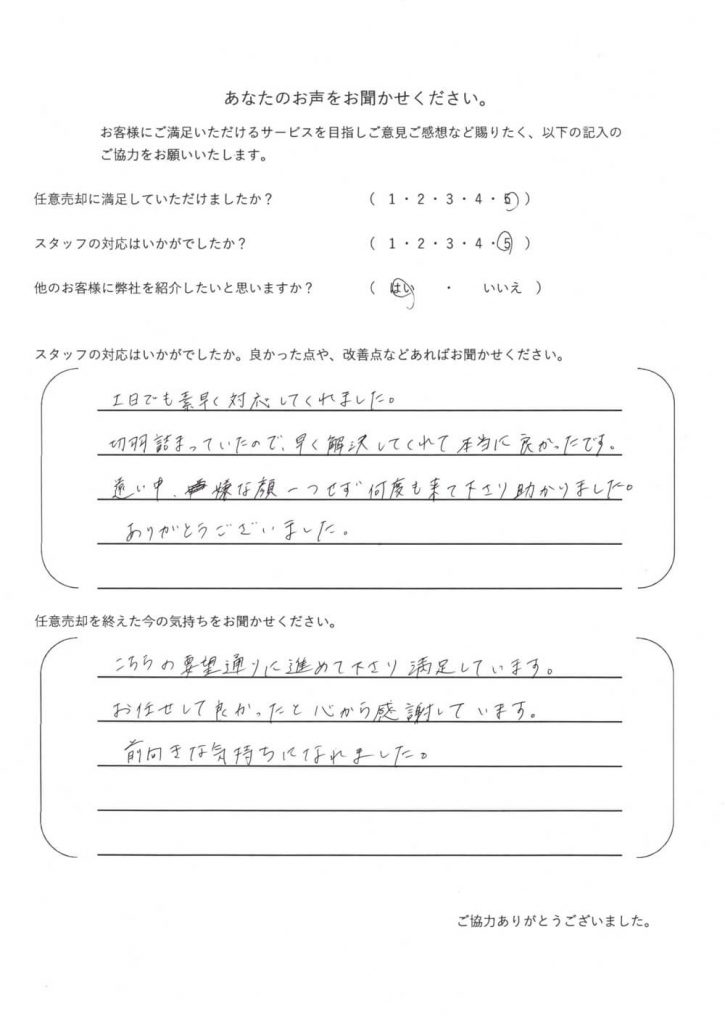 あなたのお声をお聞かせください。
お客様にご満足いただけるサービスを目指しご意見ご感想など賜りたく、以下の記入の
ご協力をお願いいたします。
任意売却に満足していただけましたか？ （ 1・2・3・4・5 ）
スタッフの対応はいかがでしたか？ （ 1・2・3・4・5 ）
他のお客様に弊社を紹介したいと思いますか？ （ はい ・ いいえ ）
スタッフの対応はいかがでしたか。良かった点や、改善点などあればお聞かせください。
土日でも素早く対応してくれました。
切羽詰まっていたので、早く解決してくれて本当に良かったです。
遠い中、嫌な顔一つせず何度も来て下さり助かりました。
ありがとうございました。
任意売却を終えた今の気持ちをお聞かせください。
こちらの要望通りに進めて下さり満足しています。
お任せして良かったと心から感謝しています。
前向きな気持ちになれました。
ご協力ありがとうございました。